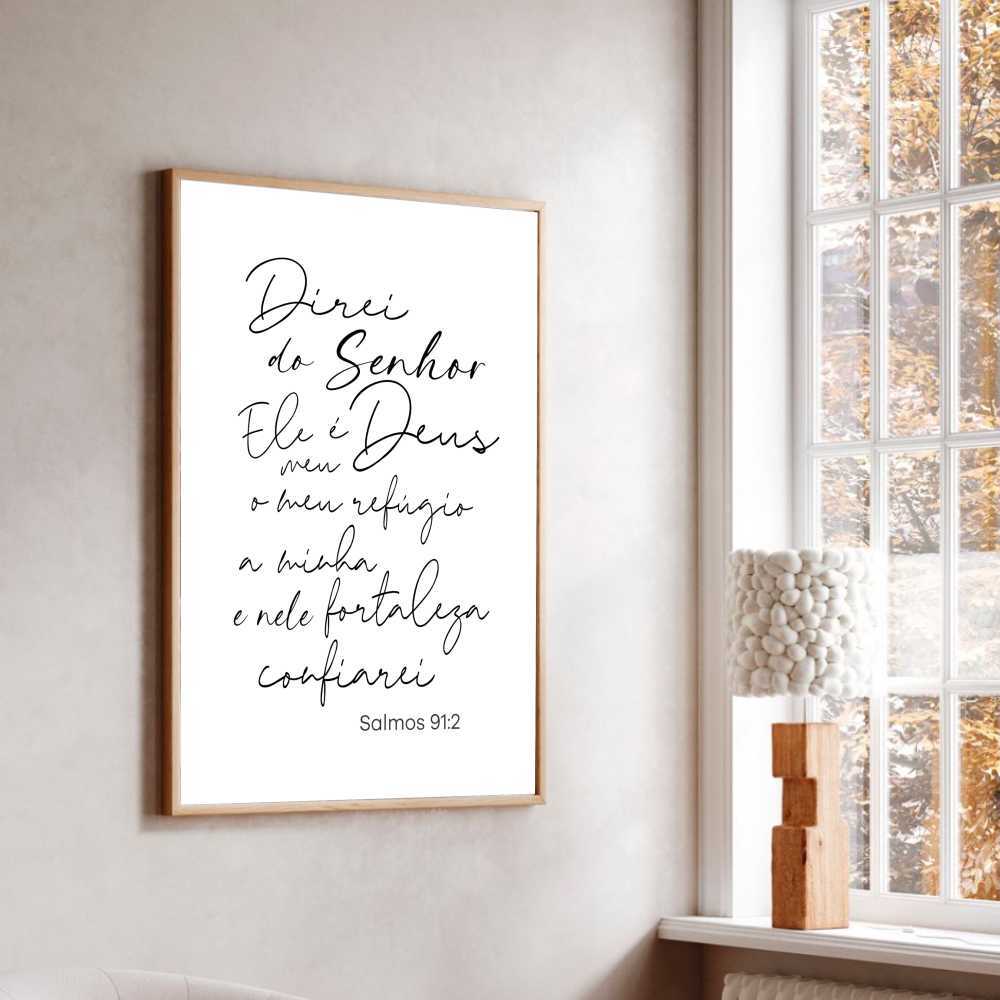 Direi
do Senhor
Ele é Deus
meu
o meu refúgio
a minha
e nele fortaleza
confiarei
Salmos 91:2